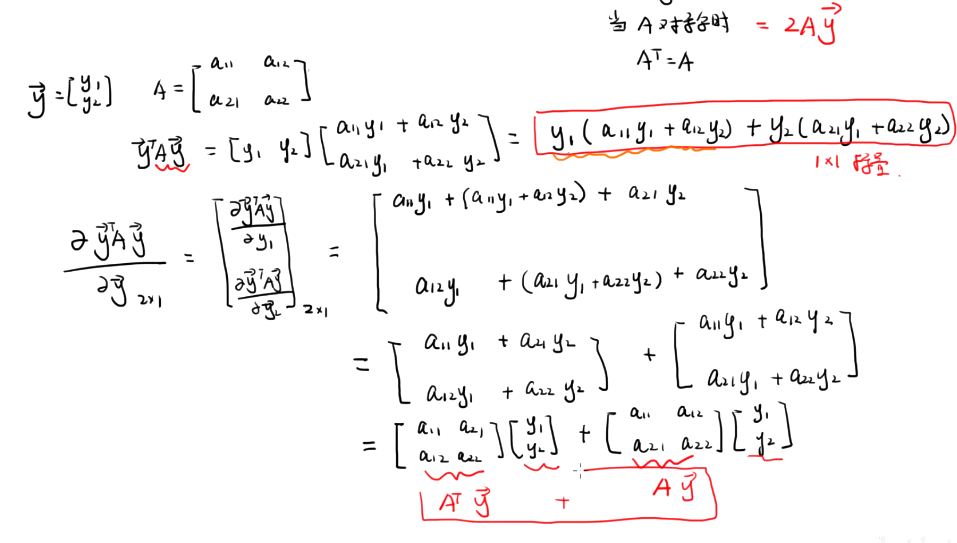 当 A 对称时 = 2Ay⃗
Aᵀ = A
y⃗ = [y₁ y₂] A = [a₁₁ a₁₂ a₂₁ a₂₂]
y⃗ᵀAy⃗ = [y₁ y₂] [a₁₁y₁ + a₁₂y₂ a₂₁y₁ + a₂₂y₂] = y₁(a₁₁y₁ + a₁₂y₂) + y₂(a₂₁y₁ + a₂₂y₂)
1×1 标量.
∂y⃗ᵀAy⃗ / ∂y⃗ ₂ₓ₁ = [∂y⃗ᵀAy⃗ / ∂y₁ ∂y⃗ᵀAy⃗ / ∂y⃗₂] ₂ₓ₁ = [a₁₁y₁ + (a₁₁y₁ + a₁₂y₂) + a₂₁y₂ a₁₂y₁ + (a₂₁y₁ + a₂₂y₂) + a₂₂y₂]
= [a₁₁y₁ + a₂₁y₂ a₁₂y₁ + a₂₂y₂] + [a₁₁y₁ + a₁₂y₂ a₂₁y₁ + a₂₂y₂]
= [a₁₁ a₂₁ a₁₂ a₂₂] [y₁ y₂] + [a₁₁ a₁₂ a₂₁ a₂₂] [y₁ y₂]
Aᵀy⃗ + Ay⃗